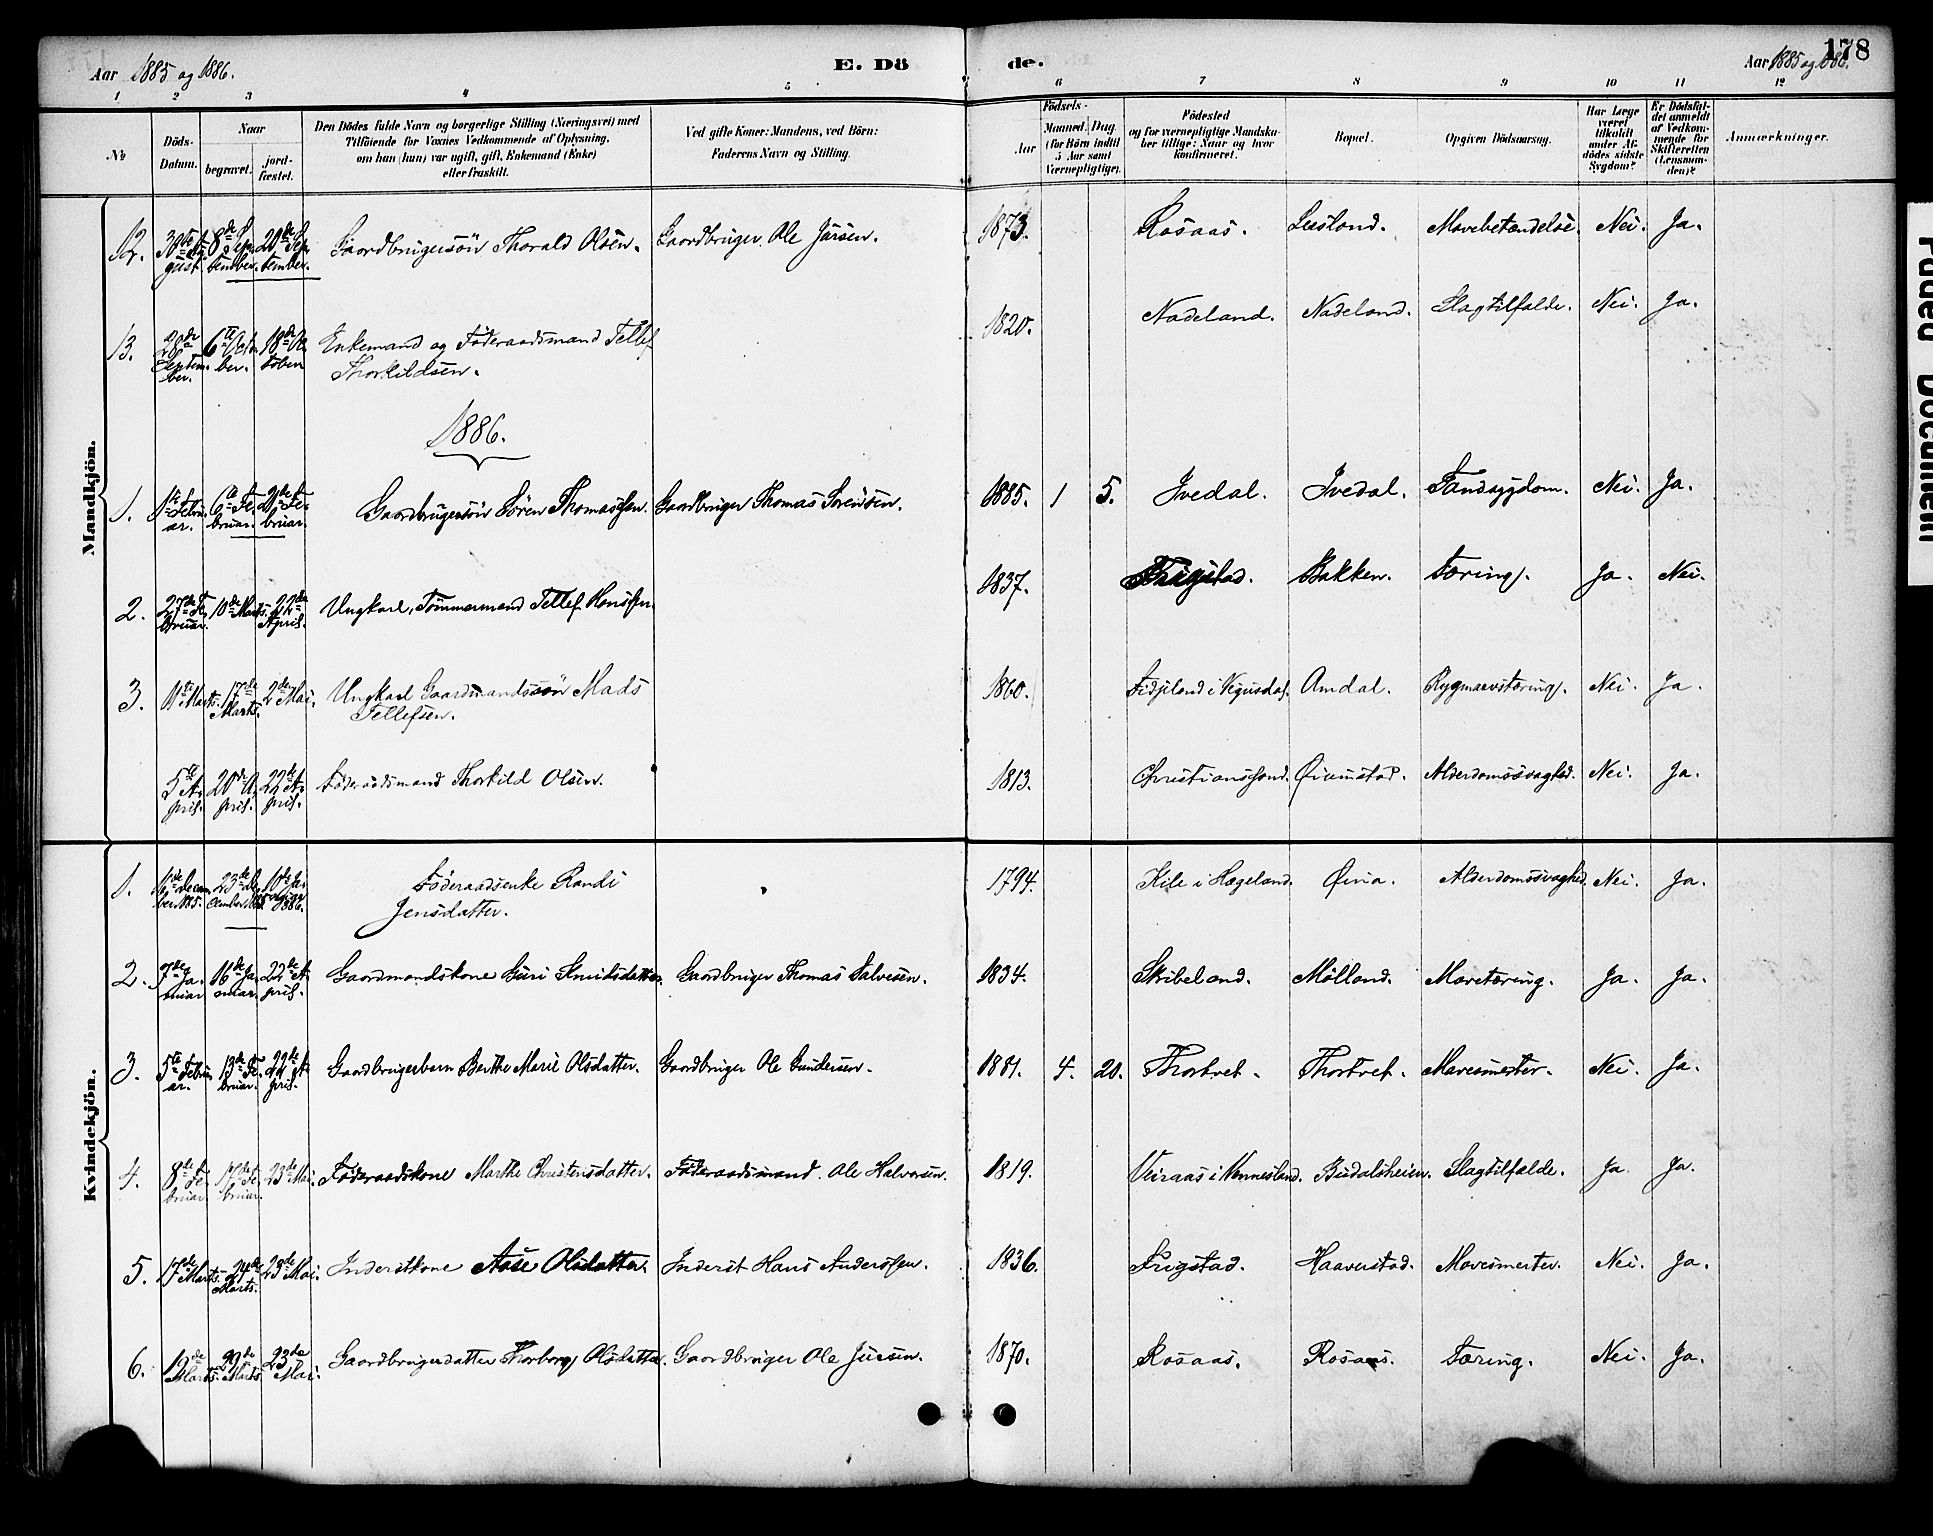 178
Aar 1885 og 1886.
E. Dö
de.
Aar 1885 og 1886.
1 2 3 4 5 6 7 8 9 10 11 12
No
Döds-Datum.
Naar
begravet.
jord-fæstet.
Den Dödes fulde Navn og borgerlige Stilling (Næringsvei) med
Tilföiende for Voxnes Vedkommende af Oplysning,
om han (hun) var ugift, gift, Enkemand (Enke)
eller fraskilt.
Ved gifte Koner: Mandens, ved Börn:
Faderens Navn og Stilling.
Födsels-
Aar
Maaned. Dag.
(for Börn indtil
5 Aar samt
Værnepligtige).
Födested
og for værnepligtige Mandska-
ber tillige: Naar og hvor
konfirmeret.
Bopæl.
Opgiven Dödsaarsag.
Har Læge
været
tilkaldt
under Af-
dödes sidste
Sygdom?
Er Dödsfal-
det anmeldt
af Vedkom-
mende for
Skifteretten
(Lensman-
den)?
Anmærkninger.
Mandkjön.
12. 8de Sep-tember. 20de Sep-tember. Gaardbrugersön Thorald Olsen. Gaardbruger Ole 1873. Rosaas. Lusland. Mavebetændelse. Nei. Ja.
13. 28de Septem-ber. 6te Octo-ber. 18de Oc-tober Enkemand og Föderaadsmand Tellef
Thorkildsen. 1820. Nadeland. Nadeland. Slagtilfælde. Nei. Ja.
1886.
1. 1te Febru-ar. 6te Fe-bruar. 21de Fe-bruar. Gaardbrugersön Sören Thomassen. Gaardbruger Thomas Sörensen. 1885. 1 5. Ivedal. Ivedal. Tandsygdom. Nei. Ja.
2. 27de Fe-bruar. 10de Marts. 22de April. Ungkarl, Tömmermand Tellef Hanssen 1837. Frigstad. Bakken. Tæring. Ja. Nei.
3. 11te Marts. 17de Marts. 2den Mai. Ungkarl Gaardmandssön Mads
Tellefsen. 1860. Fidjeland i Vegusdal. Amdal. Rygmarvstæring. Nei. Ja.
5te A-pril. 20de A-pril. 22de A-pril. Föderaadsmand Thorkild Olsen. 1813. Christianssand. Öiumstad. Alderdomssvaghed. Nei. Ja.
Kvindekjön.
1. 11de Decem-ber 1885. 23de De-cember 1885 10de Ja-nuar 1886. Föderaadsenke Randi
Jensdatter. 1794. Kile i Hægeland. Alderdomssvaghed. Nei. Ja.
2. 7de Ja-nuar 16de Ja-nuar. 22de A-pril. Gaardmandskone Guri Knudsdatter. Gaardbruger Thomas Salvesen. 1834. Skibeland. Mölland. Mavetæring. Ja. Ja.
3. 5te Febru-ar. 13de Fe-bruar. 22de A-pril. Gaardbrugerbarn Berthe Marie Olsdatter. Gaardbruger Ole Gundersen. 1881. 4. 20. Thortvet. Thortvet. Mavesmerter. Nei. Ja.
4. 8de Fe-bruar. 17de Fe-bruar. 23de Mai. Föderaadskone Marthe Christensdatter. Föderaadsmand Ole Halvorsen. 1819. Veiraas i Vennesland. Budalsheien. Slagtilfælde. Ja. Ja.
5. 17de Marts. 24de Marts. 23de Mai. Inderstkone Aase Olsdatter. Inderst Hans Anderssen. 1836. Frigstad. Haaverstad. Mavesmerter. Nei. Ja.
6. 19de Marts. 29de Marts. 23de Mai. Gaardbrugerdatter Thorborg Olsdatter. Gaardbruger Ole 1870. Rosaas. Rosaas. Tæring. Nei. Ja.
Faded Document